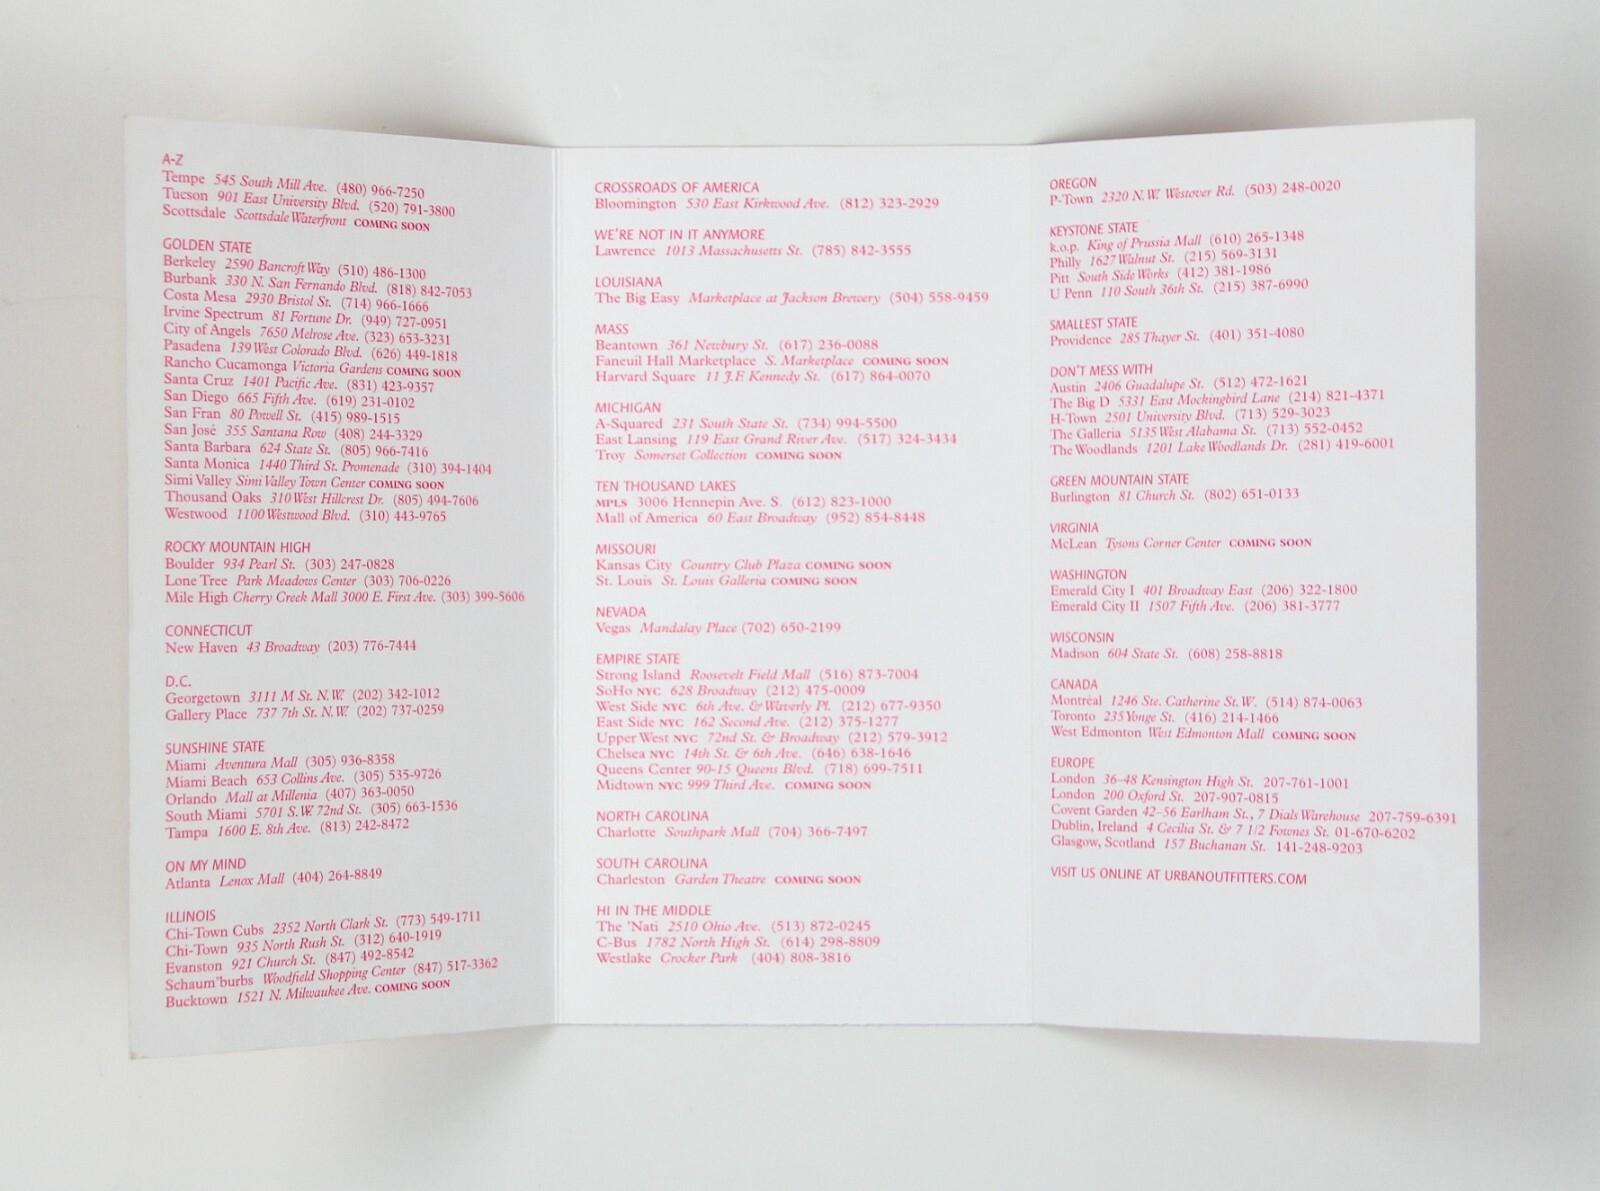 A-Z
Tempe 545 South Mill Ave. (480) 966-7250
Tucson 901 East University Blvd. (520) 791-3800
Scottsdale Scottsdale Waterfront COMING SOON
GOLDEN STATE
Berkeley 2590 Bancroft Way (510) 486-1300
Burbank 330 N. San Fernando Blvd. (818) 842-7053
Costa Mesa 2930 Bristol St. (714) 966-1666
Irvine Spectrum 81 Fortune Dr. (949) 727-0951
City of Angels 7650 Melrose Ave. (323) 653-3231
Pasadena 139 West Colorado Blvd. (626) 449-1818
Rancho Cucamonga Victoria Gardens COMING SOON
Santa Cruz 1401 Pacific Ave. (831) 423-9357
San Diego 665 Fifth Ave. (619) 231-0102
San Fran 80 Powell St. (415) 989-1515
San José 355 Santana Row (408) 244-3329
Santa Barbara 624 State St. (805) 966-7416
Santa Monica 1440 Third St. Promenade (310) 394-1404
Simi Valley Simi Valley Town Center COMING SOON
Thousand Oaks 310 West Hillcrest Dr. (805) 494-7606
Westwood 1100 Westwood Blvd. (310) 443-9765
ROCKY MOUNTAIN HIGH
Boulder 934 Pearl St. (303) 247-0828
Lone Tree Park Meadows Center (303) 706-0226
Mile High Cherry Creek Mall 3000 E. First Ave. (303) 399-5606
CONNECTICUT
New Haven 43 Broadway (203) 776-7444
D.C.
Georgetown 3111 M St. N.W. (202) 342-1012
Gallery Place 737 7th St. N.W. (202) 737-0259
SUNSHINE STATE
Miami Aventura Mall (305) 936-8358
Miami Beach 653 Collins Ave. (305) 535-9726
Orlando Mall at Millenia (407) 363-0050
South Miami 5701 S.W. 72nd St. (305) 663-1536
Tampa 1600 E. 8th Ave. (813) 242-8472
ON MY MIND
Atlanta Lenox Mall (404) 264-8849
ILLINOIS
Chi-Town Cubs 2352 North Clark St. (773) 549-1711
Chi-Town 935 North Rush St. (312) 640-1919
Evanston 921 Church St. (847) 492-8542
Schaum'burbs Woodfield Shopping Center (847) 517-3362
Bucktown 1521 N. Milwaukee Ave. COMING SOON
CROSSROADS OF AMERICA
Bloomington 530 East Kirkwood Ave. (812) 323-2929
WE'RE NOT IN IT ANYMORE
Lawrence 1013 Massachusetts St. (785) 842-3555
LOUISIANA
The Big Easy Marketplace at Jackson Brewery (504) 558-9459
MASS
Beantown 361 Newbury St. (617) 236-0088
Faneuil Hall Marketplace S. Marketplace COMING SOON
Harvard Square 11 J.F. Kennedy St. (617) 864-0070
MICHIGAN
A-Squared 231 South State St. (734) 994-5500
East Lansing 119 East Grand River Ave. (517) 324-3434
Troy Somerset Collection COMING SOON
TEN THOUSAND LAKES
MPLS 3006 Hennepin Ave. S. (612) 823-1000
Mall of America 60 East Broadway (952) 854-8448
MISSOURI
Kansas City Country Club Plaza COMING SOON
St. Louis St. Louis Galleria COMING SOON
NEVADA
Vegas Mandalay Place (702) 650-2199
EMPIRE STATE
Strong Island Roosevelt Field Mall (516) 873-7004
SoHo NYC 628 Broadway (212) 475-0009
West Side NYC 6th Ave. & Waverly Pl. (212) 677-9350
East Side NYC 162 Second Ave. (212) 375-1277
Upper West NYC 72nd St. & Broadway (212) 579-3912
Chelsea NYC 14th St. & 6th Ave. (646) 638-1646
Queens Center 90-15 Queens Blvd. (718) 699-7511
Midtown NYC 999 Third Ave. COMING SOON
NORTH CAROLINA
Charlotte Southpark Mall (704) 366-7497
SOUTH CAROLINA
Charleston Garden Theatre COMING SOON
HI IN THE MIDDLE
The 'Nati 2510 Ohio Ave. (513) 872-0245
C-Bus 1782 North High St. (614) 298-8809
Westlake Crocker Park (404) 808-3816
OREGON
P-Town 2320 N.W. Westover Rd. (503) 248-0020
KEYSTONE STATE
k.o.p. King of Prussia Mall (610) 265-1348
Philly 1627 Walnut St. (215) 569-3131
Pitt South Side Works (412) 381-1986
U Penn 110 South 36th St. (215) 387-6990
SMALLEST STATE
Providence 285 Thayer St. (401) 351-4080
DON'T MESS WITH
Austin 2406 Guadalupe St. (512) 472-1621
The Big D 5331 East Mockingbird Lane (214) 821-4371
H-Town 2501 University Blvd. (713) 529-3023
The Galleria 5135 West Alabama St. (713) 552-0452
The Woodlands 1201 Lake Woodlands Dr. (281) 419-6001
GREEN MOUNTAIN STATE
Burlington 81 Church St. (802) 651-0133
VIRGINIA
McLean Tysons Corner Center COMING SOON
WASHINGTON
Emerald City I 401 Broadway East (206) 322-1800
Emerald City II 1507 Fifth Ave. (206) 381-3777
WISCONSIN
Madison 604 State St. (608) 258-8818
CANADA
Montréal 1246 Ste. Catherine St. W. (514) 874-0063
Toronto 235 Yonge St. (416) 214-1466
West Edmonton West Edmonton Mall COMING SOON
EUROPE
London 36-48 Kensington High St. 207-761-1001
London 200 Oxford St. 207-907-0815
Covent Garden 42-56 Earlham St., 7 Dials Warehouse 207-759-6391
Dublin, Ireland 4 Cecilia St. & 7 1/2 Fownes St. 01-670-6202
Glasgow, Scotland 157 Buchanan St. 141-248-9203
VISIT US ONLINE AT URBANOUTFITTERS.COM